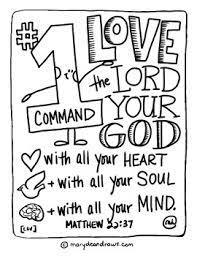 #1 COMMAND
LOVE
the LORD
YOUR
GOD
with all your HEART
+ with all your SOUL
+ with all your MIND.
MATTHEW 22:37
[ESV]
© marydeandraws.com